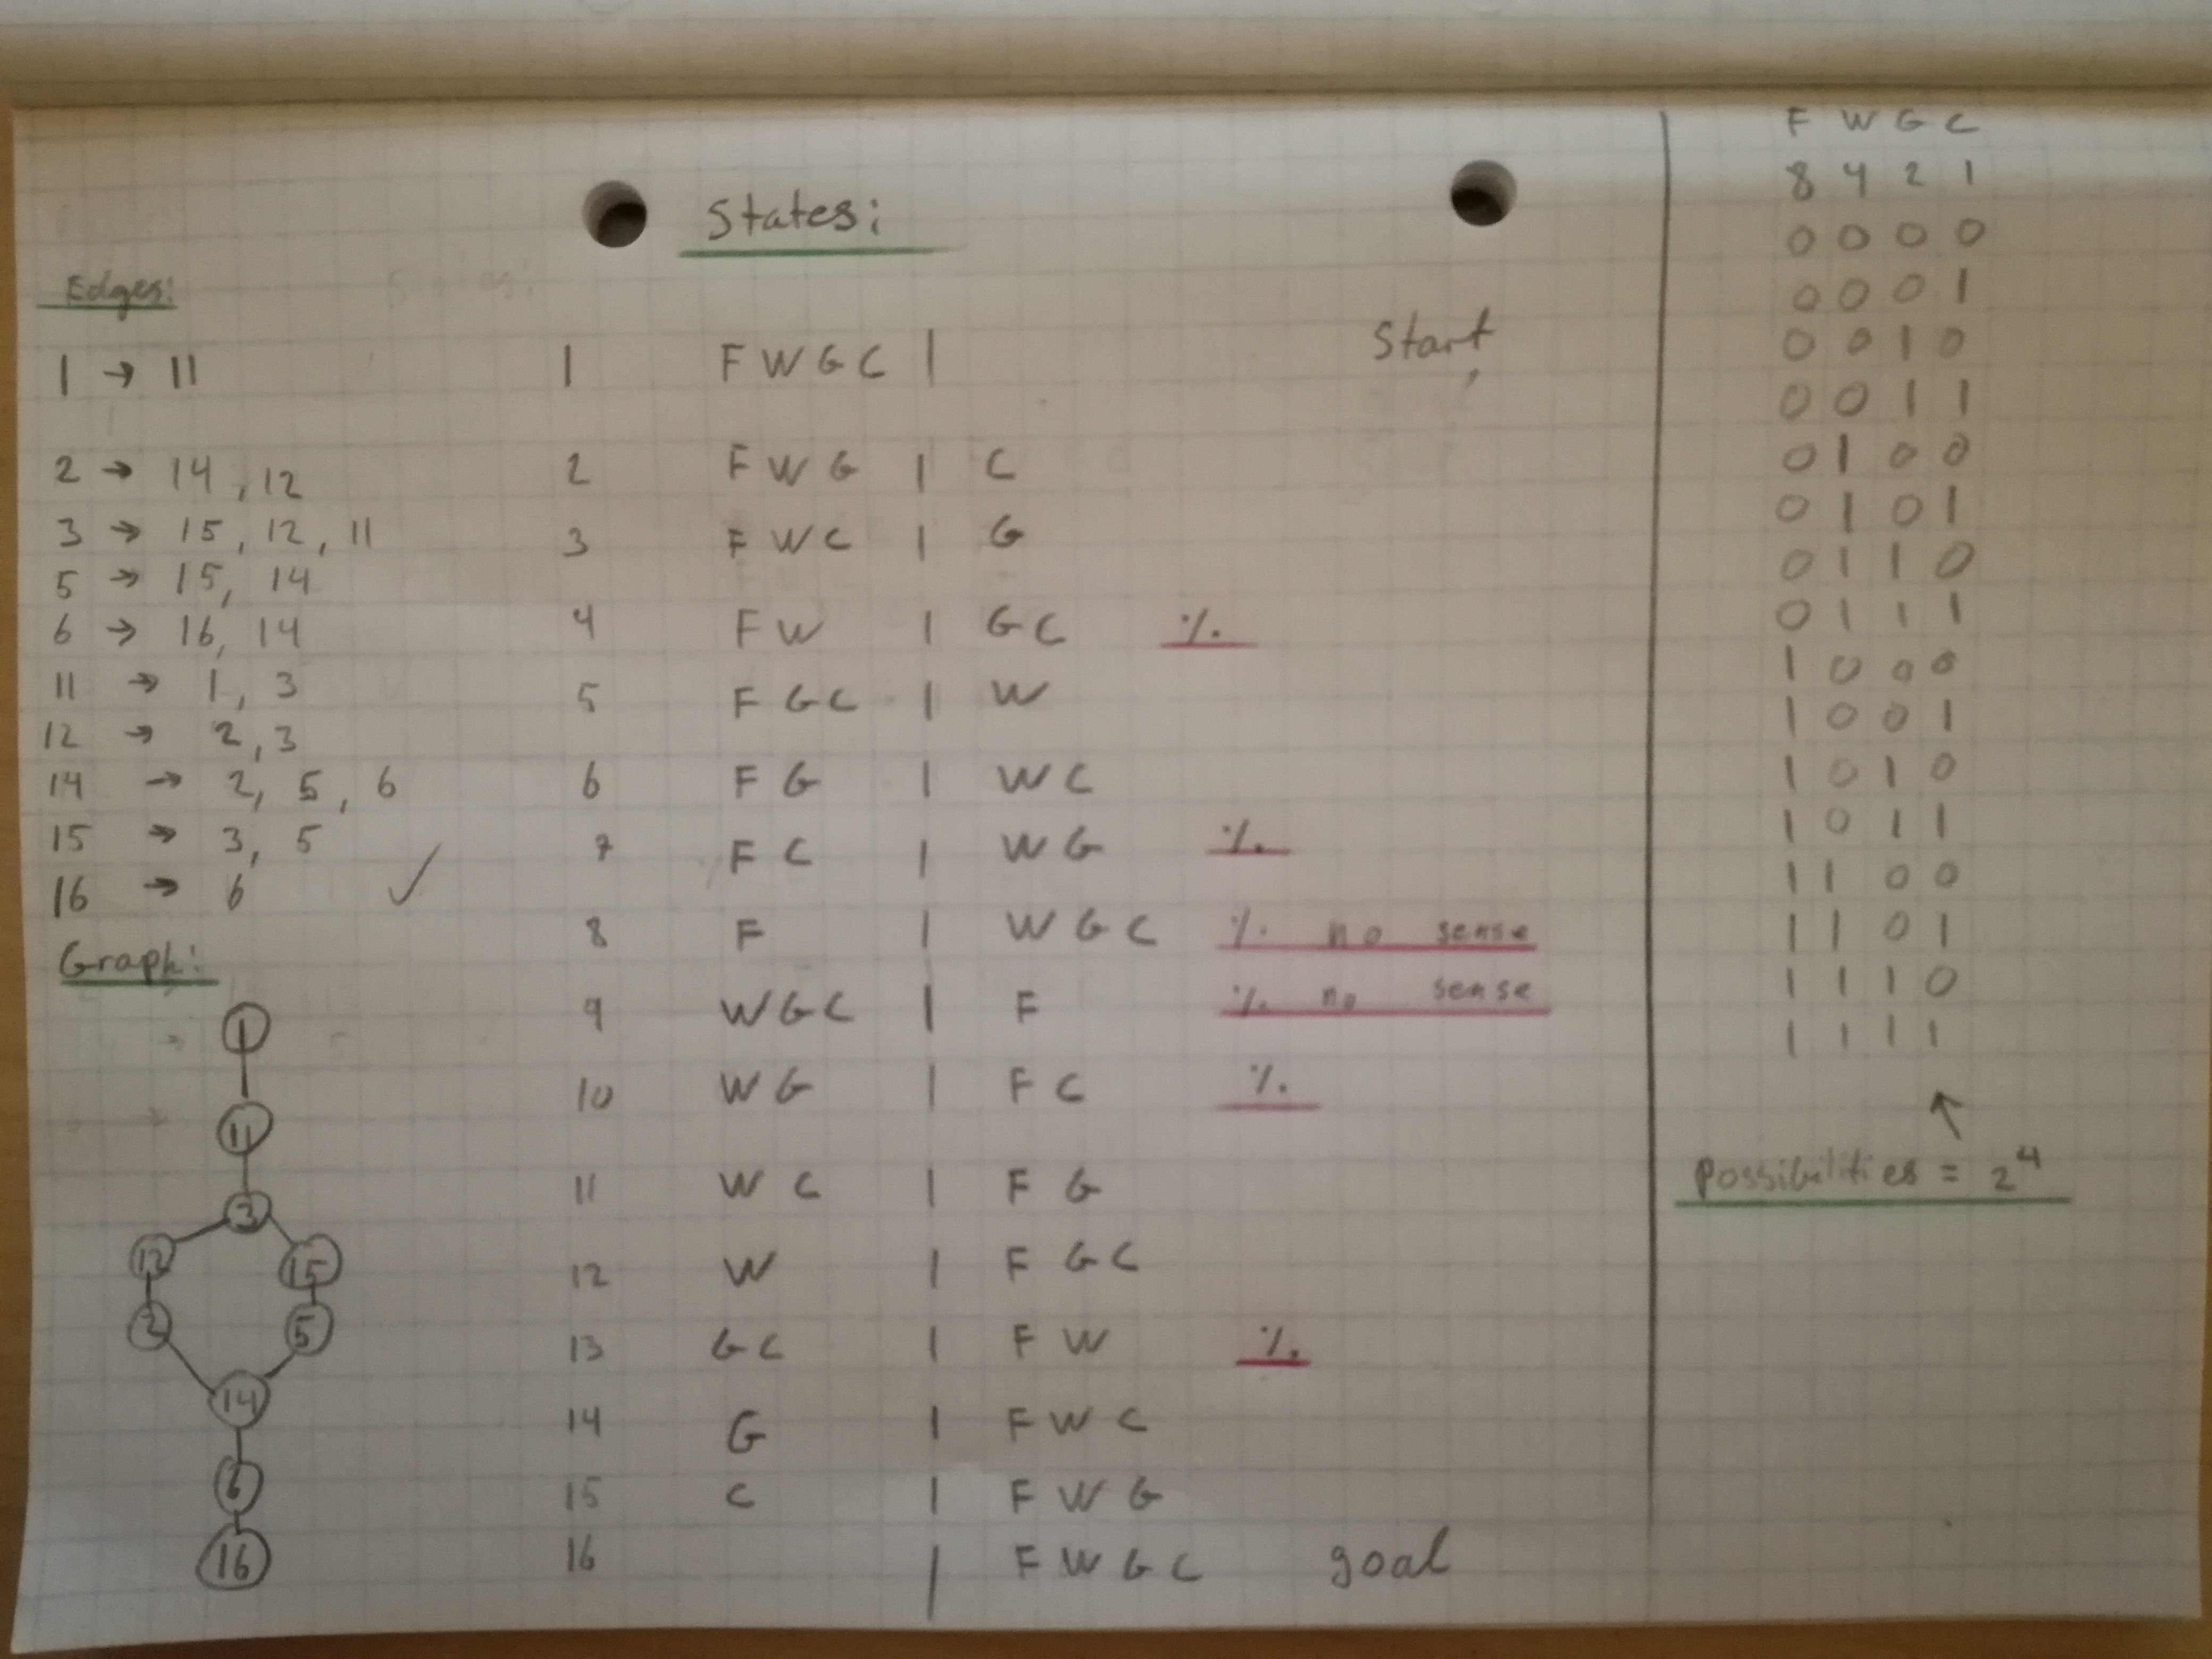 States:
Edges:
1 → 11
2 → 14, 12
3 → 15, 12, 11
5 → 15, 14
6 → 16, 14
11 → 1, 3
12 → 2, 3
14 → 2, 5, 6
15 → 3, 5
16 → 6 ✓
Graph:
1
11
3
12 15
2 5
14
6
16
1 F W G C | Start
2 F W G | C
3 F W C | G
4 F W | G C ٪
5 F G C | W
6 F G | W C
7 F C | W G ٪
8 F | W G C ٪ no sense
9 W G C | F ٪ no sense
10 W G | F C ٪
11 W C | F G
12 W | F G C
13 G C | F W ٪
14 G | F W C
15 C | F W G
16 | F W G C goal
F W G C
8 4 2 1
0 0 0 0
0 0 0 1
0 0 1 0
0 0 1 1
0 1 0 0
0 1 0 1
0 1 1 0
0 1 1 1
1 0 0 0
1 0 0 1
1 0 1 0
1 0 1 1
1 1 0 0
1 1 0 1
1 1 1 0
1 1 1 1
↑
possibilities = 2⁴